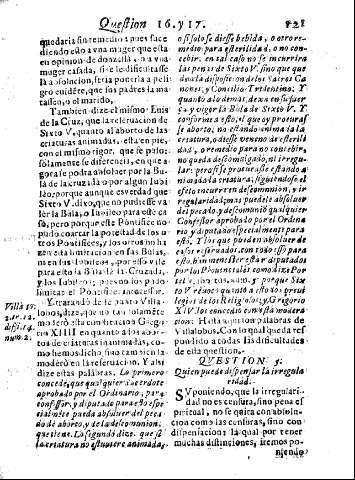 Question 16. y 17. 121
quedaria sin remedio: pues suce
diendo esto a vna muger que esta
en opinion de donzella, o a vna
muger casada, si se le dificultasse
la absolucion, seria ponerla a peli
gro euidẽte, que sus padres la ma
tassen, o el marido.
Tambien dize el mismo Luis
de la Cruz, que la reseruacion de
Sixto V, quanto al aborto de las
criaturas animadas, esta en pie,
con el mismo rigor, que se puso:
solamente se diferencia, en que a
gora se podra absoluer por la Bu
la de la cruzada o por algun Iubi
leo: porque aunque es verdad que
Sixto V. dixo, que no pudiesse va
ler la Bula, o Iubileo para este ca
so, pero porque este Pontifice no
pudo coartar la potestad de los o
tros Pontifices, y los otros no ha
zen esta limitacion en sus Bulas,
ni en sus Iubileos, por esso vale
para esto la Bula de la Cruzada,
y los Iubileos; pues no los pudo
limitar el Pontifice antecessor.
Y tratando de le punto Villa-
lobos, dize, que no tan solamẽte
moderò esta constitucion Grego
rio XIIII. en quanto a los abor-
tos de criaturas inanimadas, co-
mo hemos dicho, sino tambien la
moderò en la reseruacion. Y assi
dize estas palabras. Lo primero
concede, que qualquier sacerdote
aprobado por el Ordinario, para
confessar, y diputado para esto espe
cialmẽte pueda absoluer del peca
do de aborto, y de la descomunion,
que tiene. Lo segundo dize. que si
la criatura no estuuiere animada,
Villa 1p.
tr. 12.
diffi. 14.
num. 2.
o si solo se diesse bebida, o otro re-
medio para esterilidad, o no con-
cebir. en tal caso no se incurran
las penas de Sixto V. sino que que
da a la disposicion de los Sacros Ca
nones, y Concilio Tridentino: Y
quanto a lo demas, dexa en su fuer
ça y vigor la Bula de Sixto V. Y
conforme a esto, el que procuras
se aborto, no estando animada la
criatura, o diesse veneno de esterili
dad, o remedio para no concebir,
no queda descomulgado, ni irregu
lar: pero si se procurasse estando a
nimada la criatura, siguiendose el
efeto incurre en descomunion, y ir
regularidad, mas puedele absoluer
del pecado, y descomuniõ qualquier
Confessor aprobado por el Ordena
rio y diputado especialmente para
esto. Y los que pueden absoluer de
casos reseruados, con todo esso para
esto, es menester ser diputados
por los Prouinciales como dize Por
tel, in respons. y porque Six
to V. reuocò quanto a esto los priui-
legios de los Religiosos, y Gregorio
XIV. los concediò con esta modera-
cion: Hasta aqui son palabras de
Villalobos. Con lo qual queda res
pondido a todas las dificultades
de esta question.
QVESTION 5.
Quien puede dispensar la irregula
ridad.
SVponiendo, que la irregulari-
dad no es censura, sino pena es
piritual, no se quita con absolu-
cion como las censuras, sino con
dispensacion: la qual por tener
muchas distinciones, iremos po-
niendo